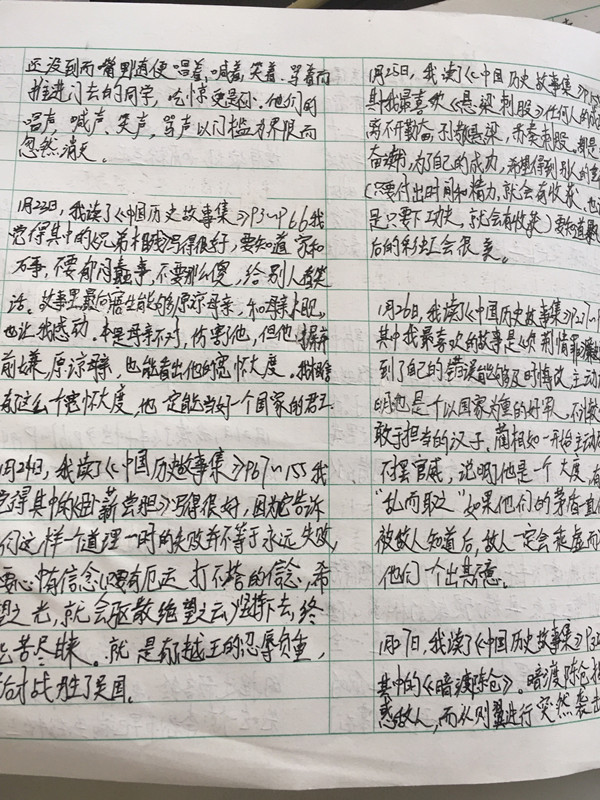 还没到而嘴里便唱着、喊着、笑着、骂着而
推进门去的同学，吃惊更是不小。他们的
唱声、喊声、笑声，骂声以门槛为界限而
忽然消失。
1月23日，我读了《中国历史故事集》P3～P66我
觉得其中的《兄弟相残》写得很好，要知道家和
万事，不要郁闷蠢事，不要那么傻，给别人看笑
话。故事里最
也让我感动。本是母亲不对，伤害他，但他摒弃
前嫌，原谅母亲，也能看出他的宽怀大度。我相信
有这么个宽怀大度，他一定能当好一个国家的君王
1月24日，我读了《中国历史故事集》P67～155我
觉得其中的《卧薪尝胆》写得很好，因为它告诉
们这样一个道理一时的失败并不等于永远失败，
要心怀有信念，只要有厄运打不垮的信念，希
望之光，就会驱散绝望之云，坚持下去，终
能苦尽甘来。就是有越王的忍辱负重，
后才战胜了吴国。
1月25日，我读了《中国历史故事集》P15
其中我最喜欢《悬梁刺股》任何人的成
离不开勤奋，孙敬悬梁，苏秦刺股，都是
奋谢，为了自己的成功，希望得到别人的
（只要付出时间和精力，就会有收获，也
是只要下工夫，就会有收获）要知道
后的彩虹会很美。
1月26日，我读了《中国历史故事集》P27
其中我最喜欢的故事是《负荆请罪》廉
到了自己的错误能够及时悔改主动
明他是个以国家为重的好男人，不计较
敢于担当的汉子、蔺相如一开始主动
不摆官威，说明他是一个大度，有
“乱而取之”如果他们的矛盾真
被敌人知道后，敌人一定会乘虚而
他们一个出其不意。
1月27日，我读了《中国历史故事集》P32
其中的《暗渡陈仓》。暗渡陈仓指
惑敌人，而从侧翼进行突然袭击